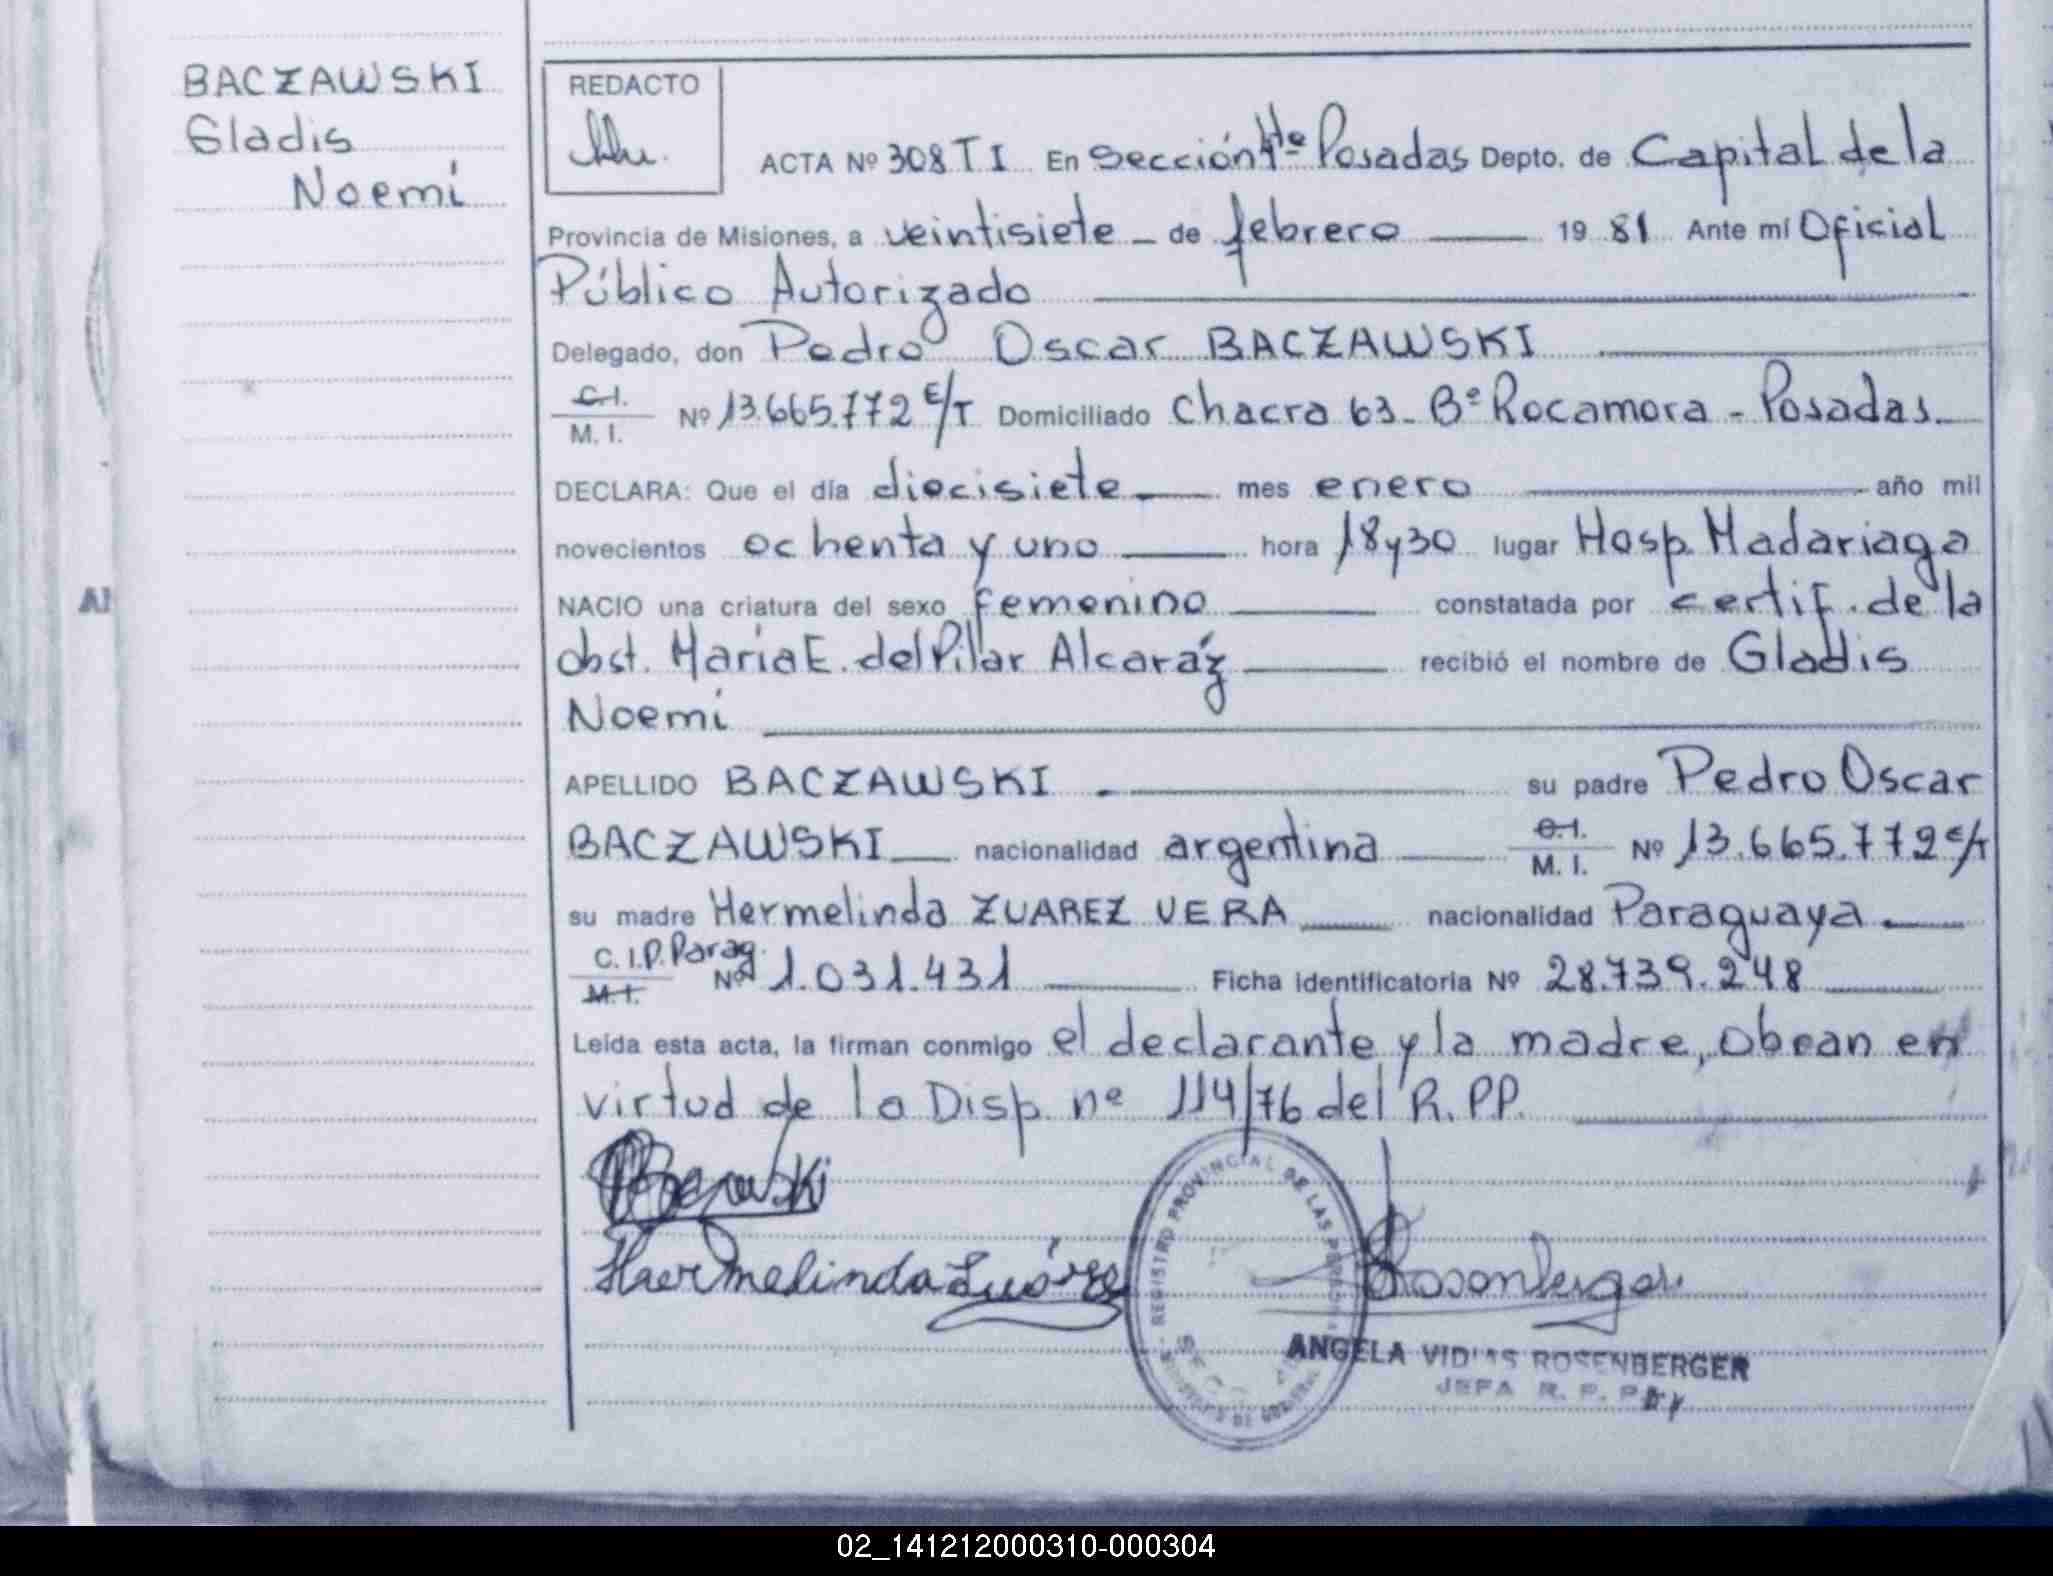 BACZAWSKI
Gladis
Noemí
REDACTO
ACTA Nº 308 T I En Sección 4ta Posadas Depto. de Capital de la
Provincia de Misiones, a veintisiete - de febrero 19 81 Ante mí Oficial
Público Autorizado
Delegado, don Pedro Oscar BACZAWSKI
C.I.
M. I. Nº 13.665.772 E/T Domiciliado Chacra 63 - Bº Rocamora - Posadas.
DECLARA: Que el día diecisiete mes enero año mil
novecientos ochenta y uno hora 18 y 30 lugar Hosp. Madariaga
NACIO una criatura del sexo femenino constatada por certif. de la
obst. María E. del Pilar Alcaráz recibió el nombre de Gladis
Noemí
APELLIDO BACZAWSKI su padre Pedro Oscar
BACZAWSKI nacionalidad argentina C.I.
M. I. Nº 13.665.772 E/T
su madre Hermelinda ZUAREZ VERA nacionalidad Paraguaya
C. I.P. Parag.
M. I. Nº 1.031.431 Ficha identificatoria Nº 28.739.248
Leída esta acta, la firman conmigo el declarante y la madre, obran en
virtud de la Disp. nº 114/76 del R.PP.
Haermelinda Zuárez
REGISTRO PROVINCIAL DE LAS PERSONAS
ANGELA VIDIAS ROSENBERGER
JEFA R. P. P.
AI
02_141212000310-000304